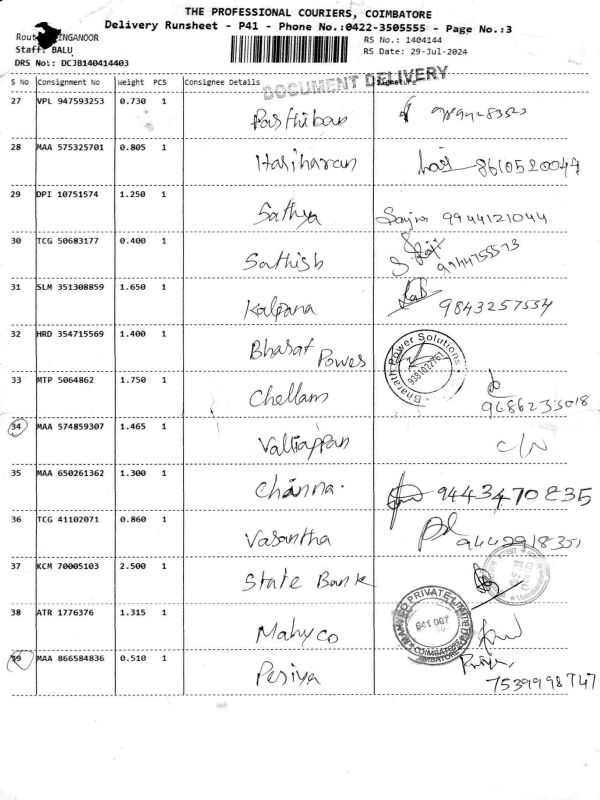 THE PROFESSIONAL COURIERS, COIMBATORE
Delivery Runsheet - P41 - Phone No.:0422-3505555 - Page No.:3
INGANOOR
RS No.: 1404144
Staff: BALU
RS Date: 29-Jul-2024
DRS No:: DCJB140414403
DOCUMENT DELIVERY
S No Consignment No Weight PCS Consignee Details Signature
27 VPL 947593253 0.730 1 Parthiban
28 MAA 575325701 0.805 1 Hariharan hari 8610520049
29 DPI 10751574 1.250 1 Sathya 9944121044
30 TCG 50683177 0.400 1 Sathish
31 SLM 351308859 1.650 1 Kalpana 9843257554
32 HRD 354715569 1.400 1 Bharat Power Bharath Power Solutions 9381022761
33 MTP 5064862 1.750 1 Chellam
34 MAA 574859307 1.465 1 Valliappan C/N
35 MAA 650261362 1.300 1 Channa. 9443470835
36 TCG 41102071 0.860 1 Vasantha
37 KCM 70005103 2.500 1 State Bank
38 ATR 1776376 1.315 1 Mahyco PRIVATE LIMITED 641 007 COIMBATORE
39 MAA 866584836 0.510 1 Periya Priya,
7539998747